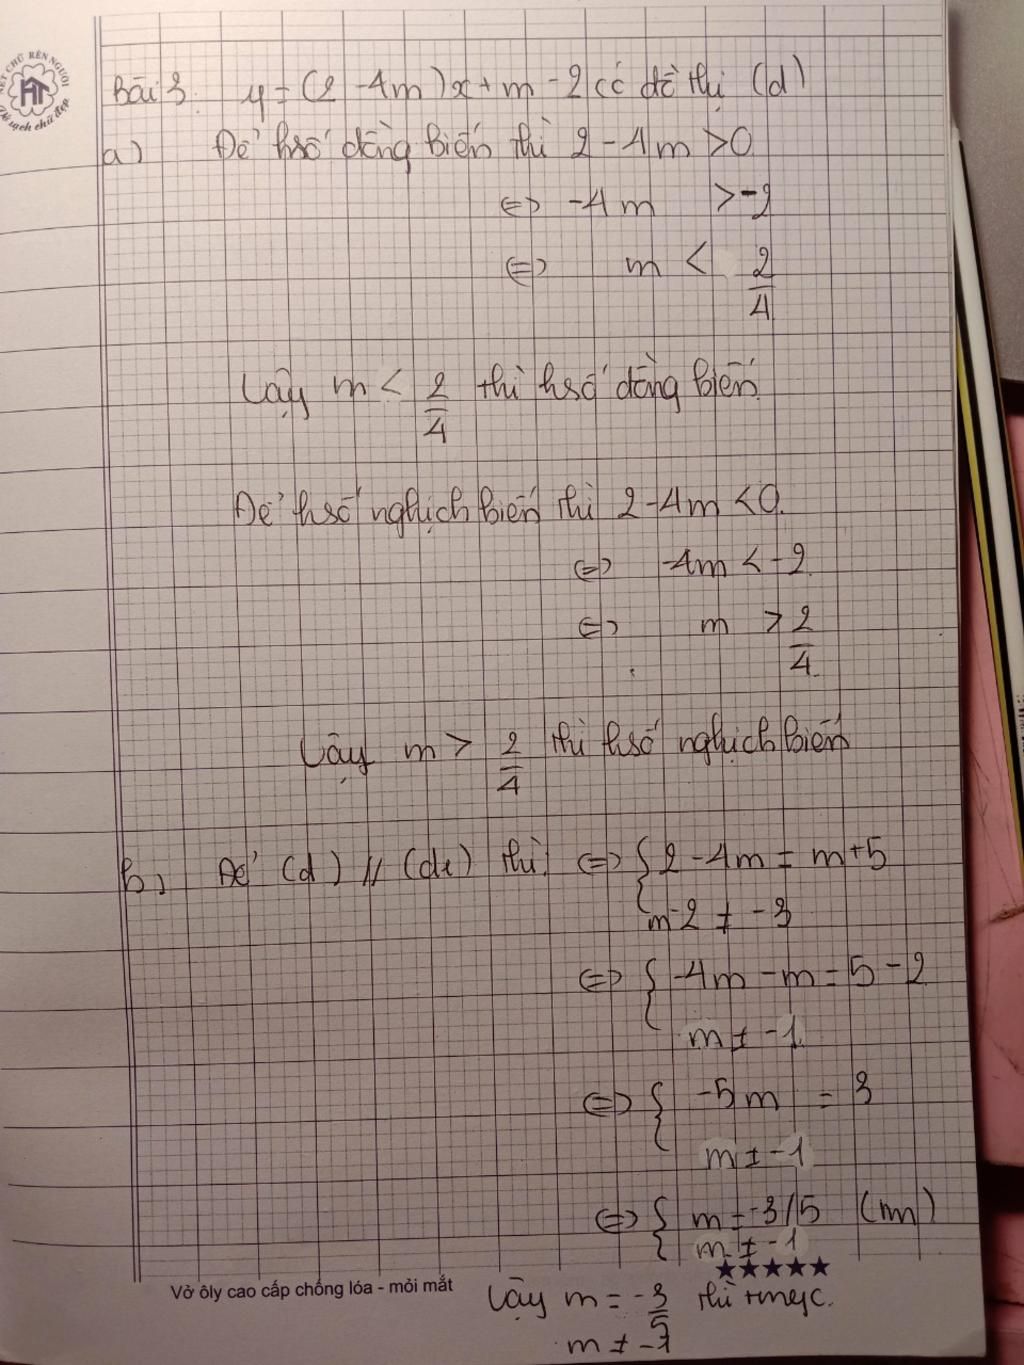 NÉT CHỮ RÈN NGƯỜI
Vở sạch chữ đẹp
Bài 3. y = (2 - 4m)x + m - 2 có đồ thị (d)
a) Để hsố đồng biến thì 2 - 4m > 0
<=> -4m > -2
<=> m < 2/4
Vậy m < 2/4 thì hsố đồng biến.
Để hsố nghịch biến thì 2 - 4m < 0.
<=> -4m < -2.
<=> m > 2/4.
Vậy m > 2/4 thì hsố nghịch biến
b, Để (d) // (d1) thì <=> { 2 - 4m = m + 5
m - 2 ≠ -3
<=> { -4m - m = 5 - 2
m ≠ -1
<=> { -5m = 3
m ≠ -1
<=> { m = -3/5 (tm)
{ m ≠ -1
Vở ôly cao cấp chống lóa - mỏi mắt
Vậy m = -3/5 thì tmyc.